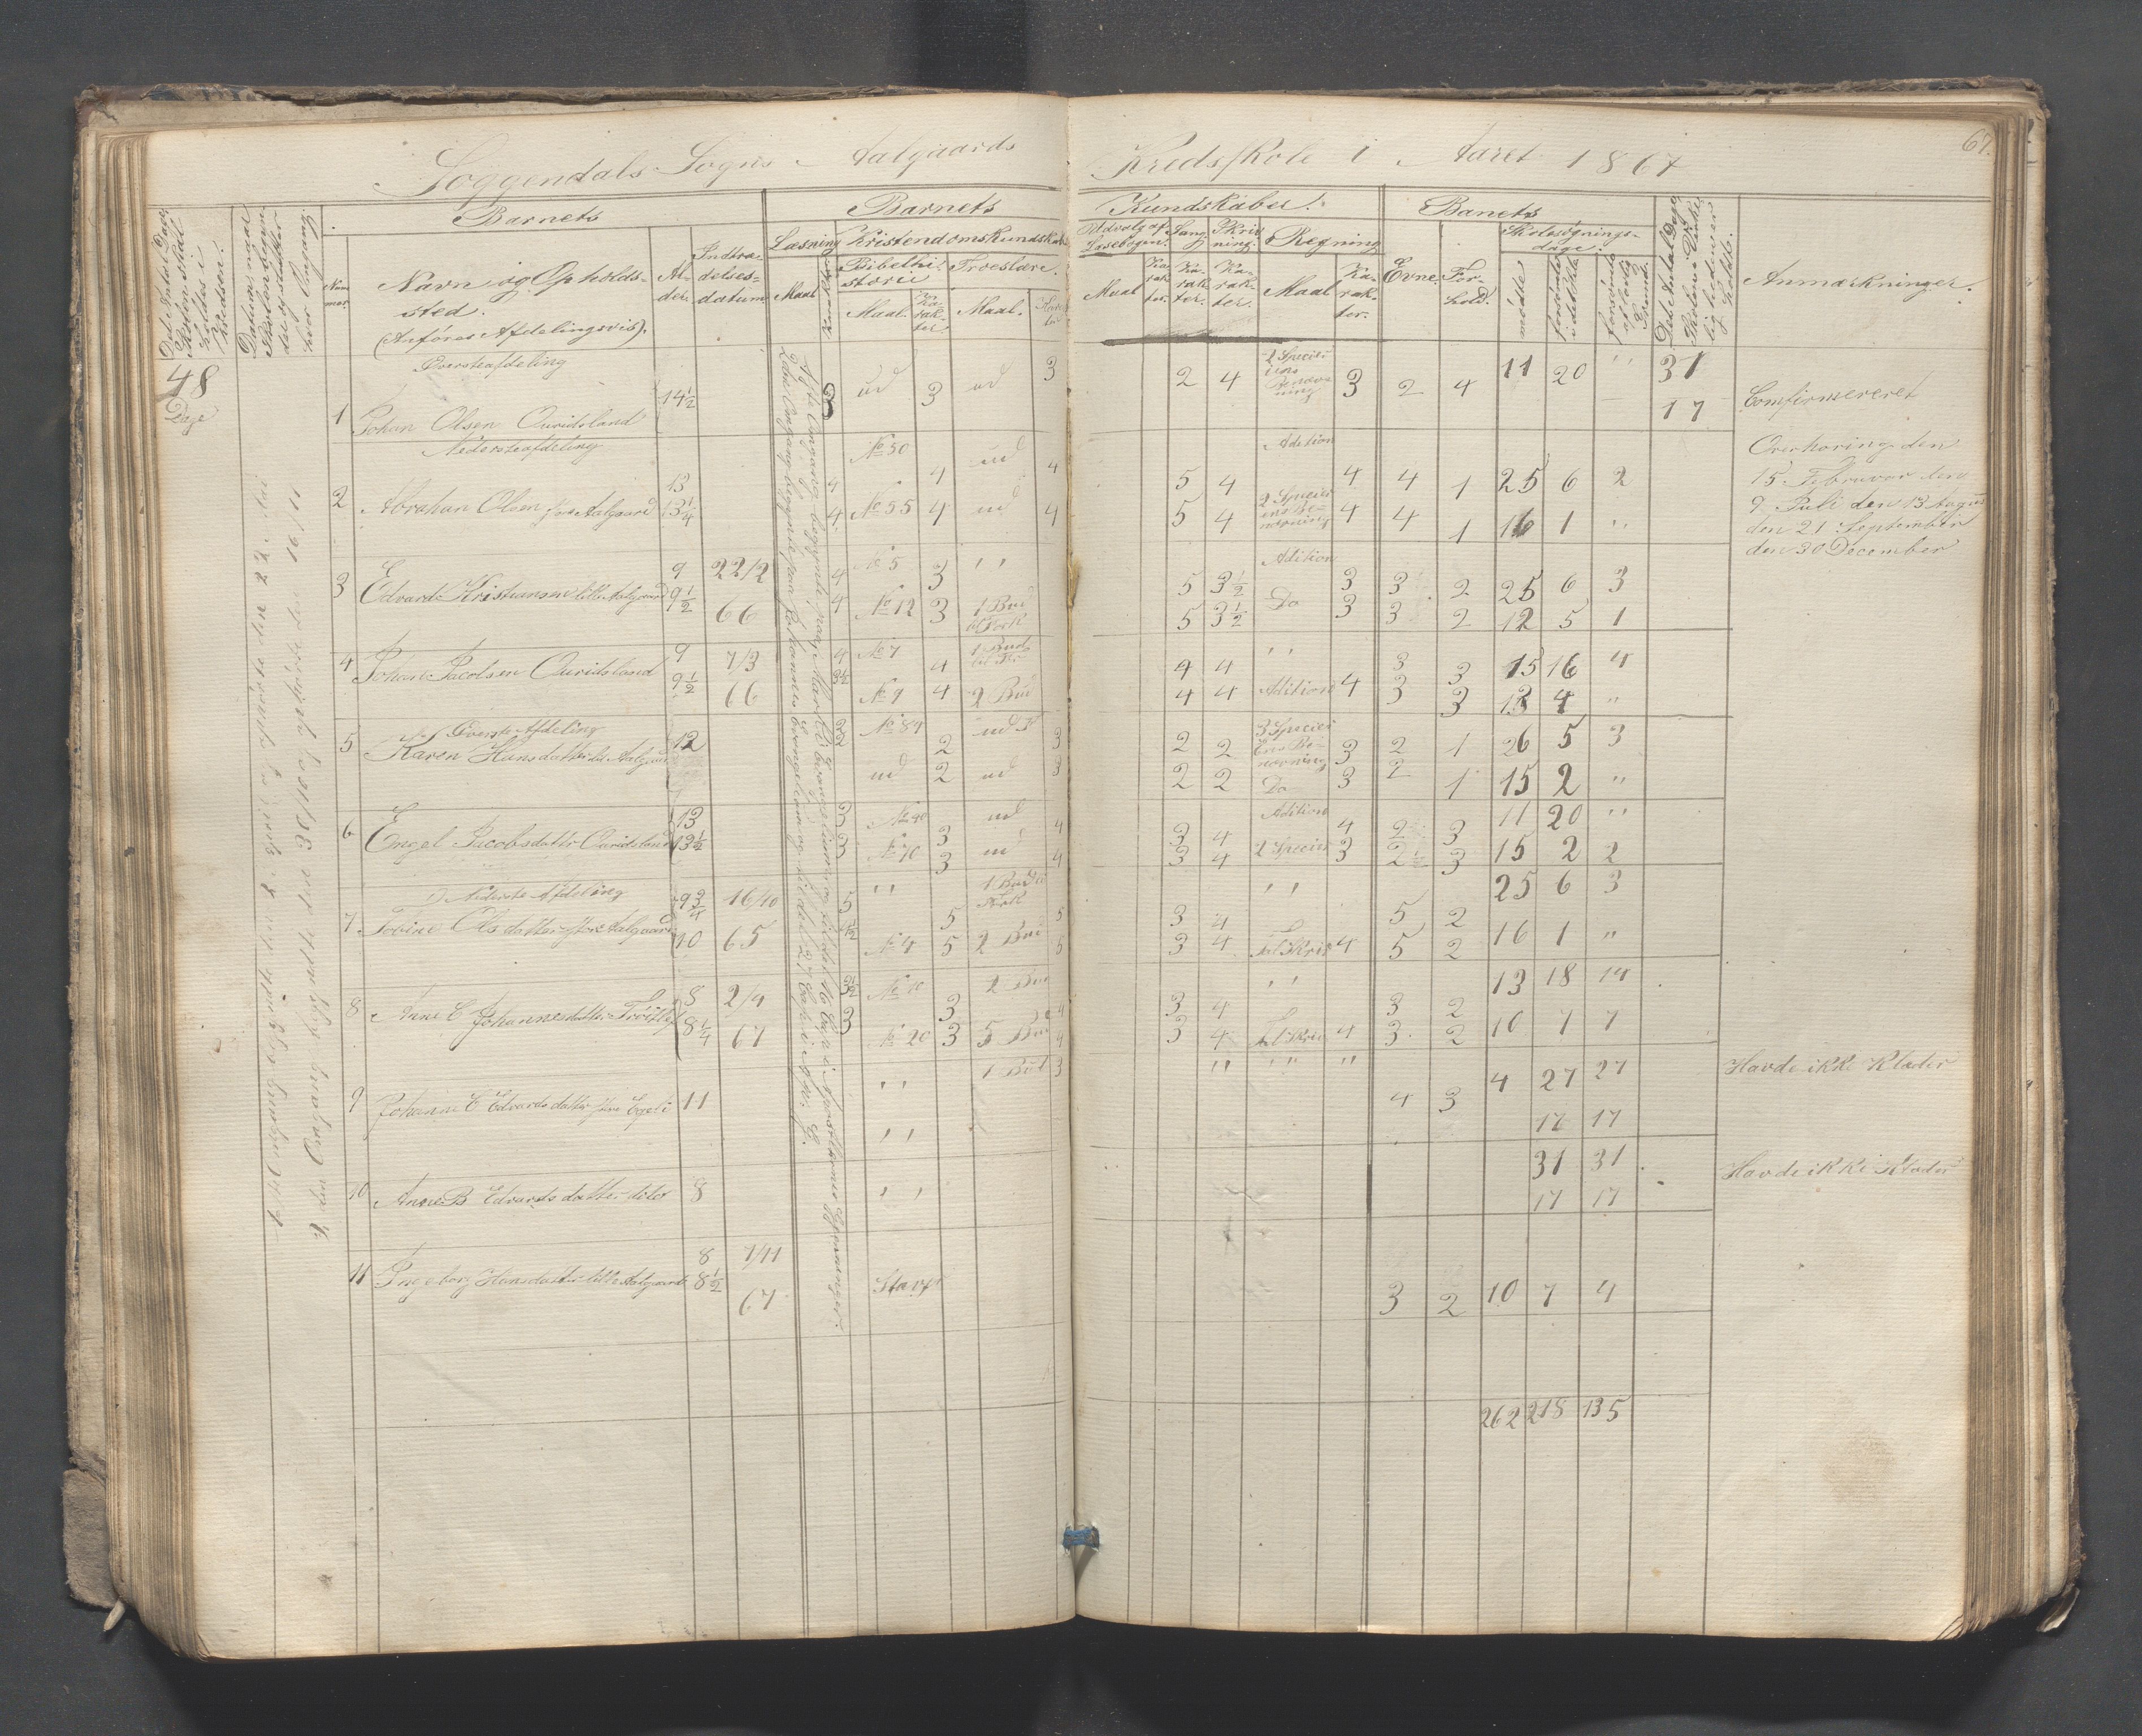 Soggendals Sogns Aalgaards Kredsskole i Aaret 1867
67.
Det Antal Dage Skolen skal holdes i Kredsen.
Datum naar Skolen begyndes og slutter hver Omgang.
Barnets
Nummer.
Navn og Opholdssted.
(Anføres Afdelingsvis).
Alder.
Indtrædelsesdatum
Barnets
Læsning
Maal
Kristendomskundskab
Bibelhistorie
Maal.
Karakter.
Troeslære.
Maal.
Kundskaber.
Udvalg af Læsebogen.
Maal
Karakter.
Sang.
Karakter.
Skrivning.
Karakter.
Regning
Maal
Karakter.
Banets
Evne.
Forhold.
Skolesøgningsdage.
mødte
forsømte i det Hele.
forsømte af lovlig Grund.
Det Antal Dage Skolen i Virkeligheden er holdt.
Anmærkninger.
48 Dage
2den Omgang begyndte den 30/10 og ophørte den 16/11
Øversteafdeling
1 Johan Olsen Ouridsland 14½ 3 ud 3 ud 3 2 4 2 Species 3 2 4 11 20 " 31
17
Comfirmereret
Nedersteafdeling
2 Abrahan Olsen store Aalgaard 13 4 No 50 4 ud 4 5 4 Adition 4 4 1 25 6 2
13¼ 4 No 55 4 ud 4 5 4 2 Species 4 4 1 16 1 "
Overhøring den
15 Februar den
9 Juli den 13 August
den 21 September
den 30 December
3 Edvard Kristiansen lille Aalgaard 9 22/2 4 No 5 3 " 5 3½ Adition 3 3 2 25 6 3
9½ 66 4 No 12 3 1 Bud 5 3½ Do 3 3 2 12 5 1
4 Johan Jacobsen Ouridsland 9 7/3 4 No 7 4 1 Bud 4 4 " 3 3 15 16 4
9½ 66 3½ No 9 4 2 Bud 4 4 Adition 4 3 3 13 4 "
Øverste Afdeling
5 Karen Hansdatter lil Aalgaard 12 2 No 84 2 ud 3 2 2 3 Species 3 2 1 26 5 3
2 ud 2 ud 3 2 2 Do 3 2 1 15 2 "
6 Engel Jacobsdatter Ouridsland 13 3 No 40 3 ud 4 3 4 Adition 4 2 3 11 20 "
13½ 3 No 70 3 ud 4 3 4 2 Species 3 2½ 3 15 2 2
Nederste Afdeling
7 Tobine Olsdatter store Aalgaard 9¾ 16/10 5 " 5 1 Bud 5 3 4 " 5 2 25 6 3
10 65 4½ No 4 5 2 Bud 5 3 4 Talskriv 4 5 2 16 1 "
8 Anne E Johannesdatter 8 2/4 3½ No 10 3 2 Bud 4 3 4 " 3 2 13 18 14
8¼ 67 3 No 20 3 5 Bud 4 3 4 Talskriv 4 3 2 10 7 7
9 Johanne E Edvardsdatter store Egeli 11 " 1 Bud 3 " " " 4 3 4 27 27 Havde ikke Klæder
" 17 17
10 Anne B Edvardsdatter 8 " 31 31 Havde ikke Klæder
17 17
11 Ingeborg Hansdatter lille Aalgaard 8 7/11
8½ 67 3 2 10 7 4
262 218 135